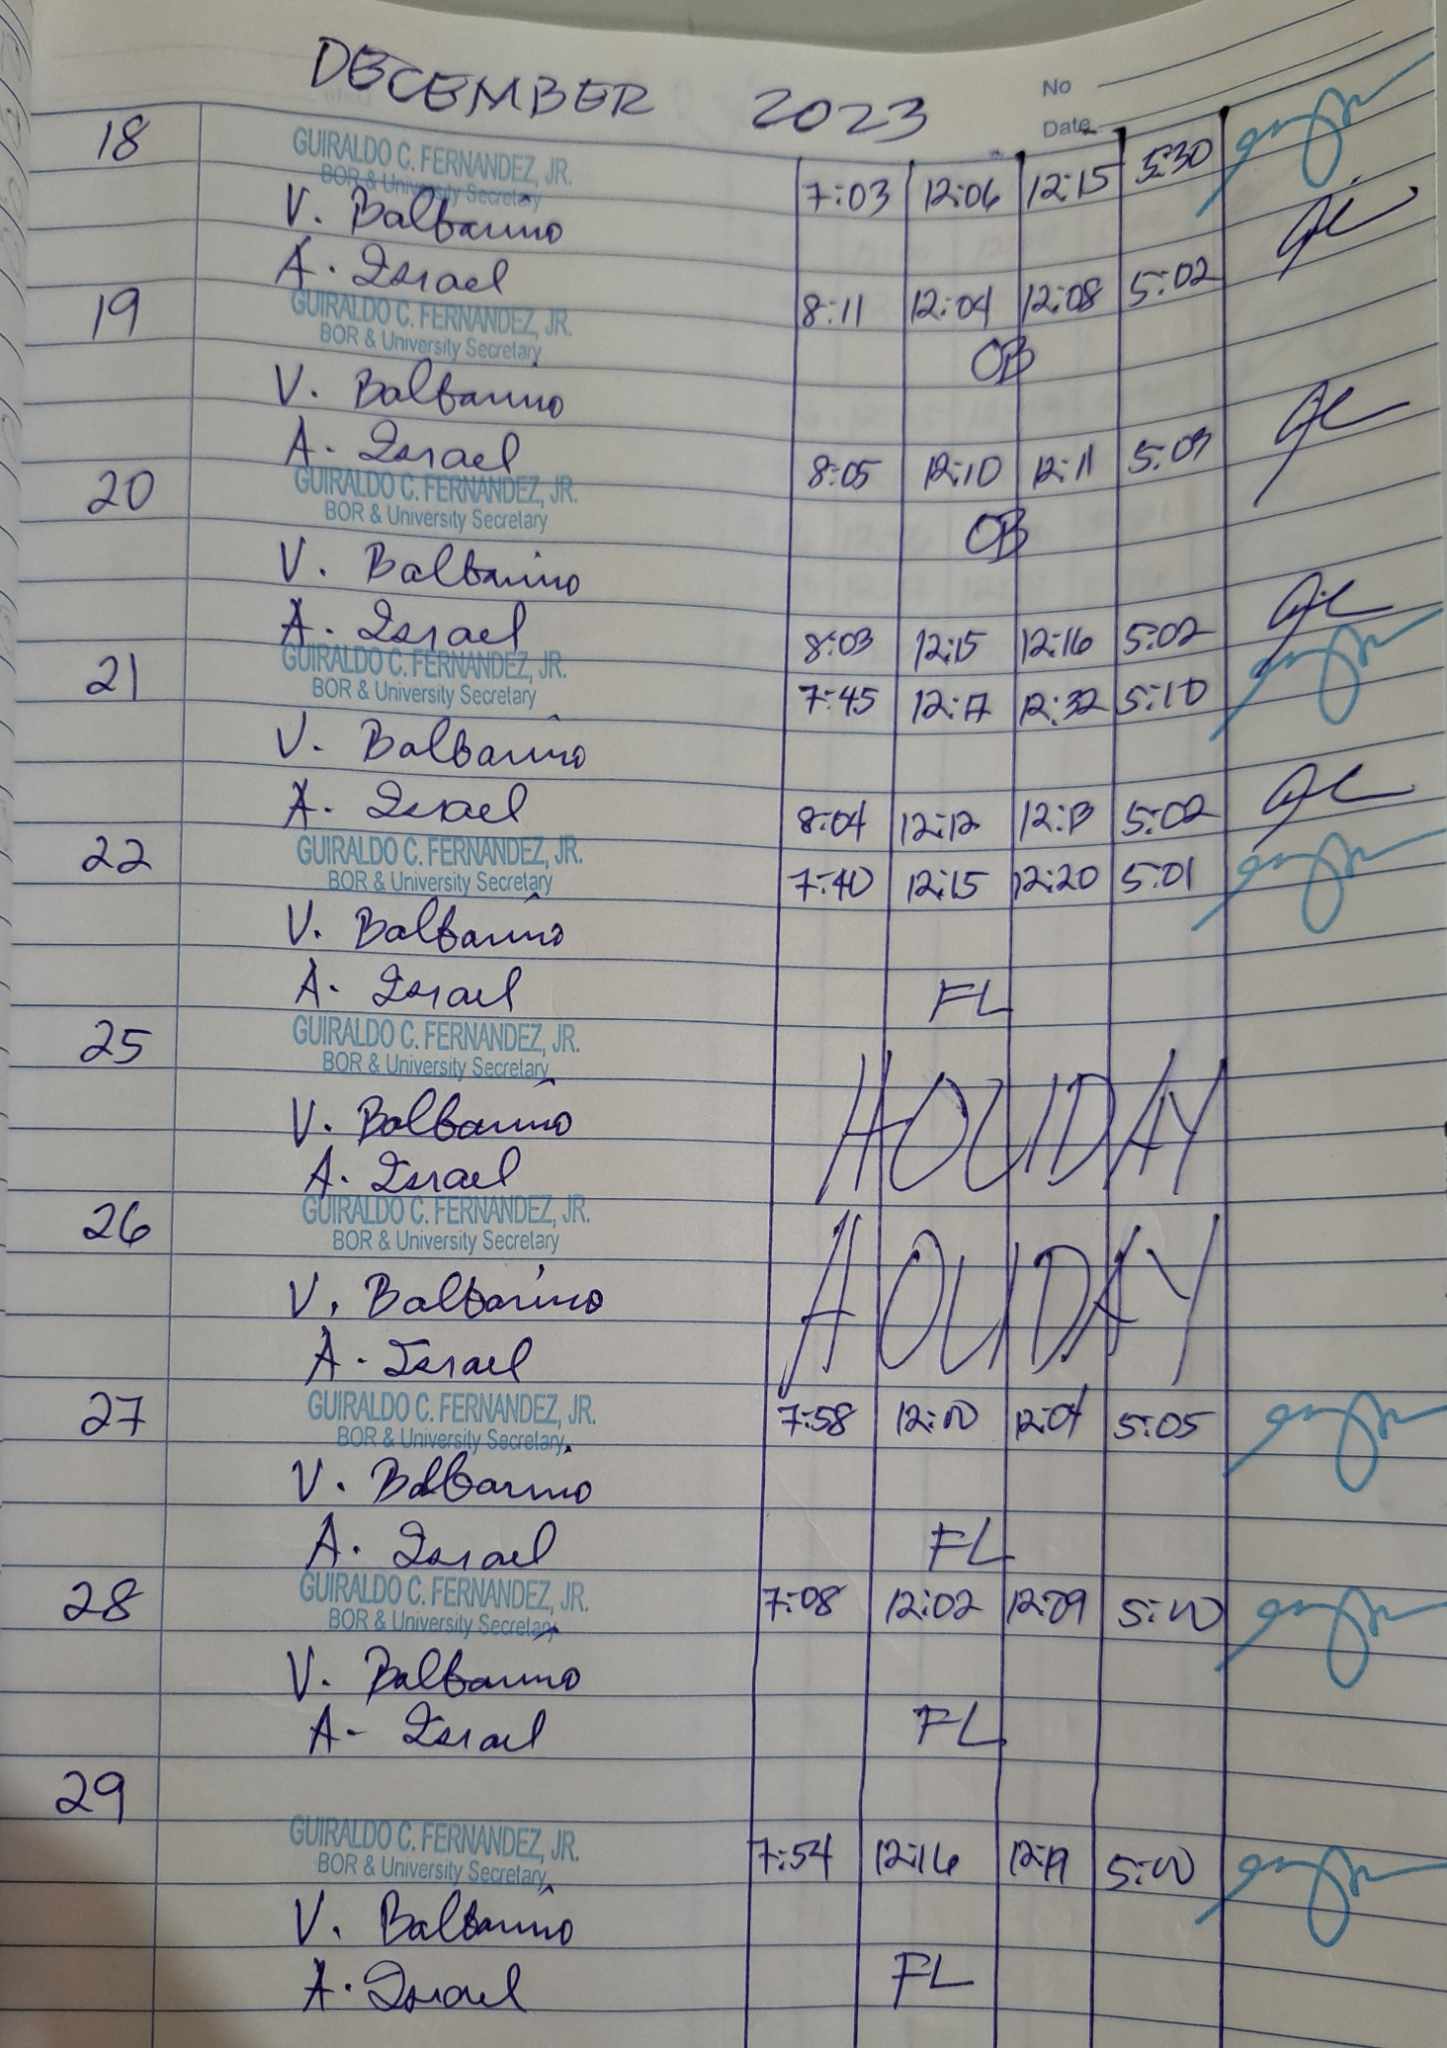 DECEMBER 2023
No
Date
18 GUIRALDO C. FERNANDEZ, JR. 7:03 12:06 12:15 5:30
BOR & University Secretary
V. Balbarino
A. Israel 8:11 12:04 12:08 5:02
19 GUIRALDO C. FERNANDEZ, JR. OB
BOR & University Secretary
V. Balbarino
A. Israel 8:05 12:10 12:11 5:03
20 GUIRALDO C. FERNANDEZ, JR. OB
BOR & University Secretary
V. Balbarino
A. Israel 8:03 12:15 12:16 5:02
21 GUIRALDO C. FERNANDEZ, JR. 7:45 12:17 12:32 5:10
BOR & University Secretary
V. Balbarino
A. Israel 8:04 12:12 12:13 5:02
22 GUIRALDO C. FERNANDEZ, JR. 7:40 12:15 12:20 5:01
BOR & University Secretary
V. Balbarino
A. Israel FL
25 GUIRALDO C. FERNANDEZ, JR.
BOR & University Secretary
V. Balbarino HOLIDAY
A. Israel
26 GUIRALDO C. FERNANDEZ, JR.
BOR & University Secretary
V. Balbarino HOLIDAY
A. Israel
27 GUIRALDO C. FERNANDEZ, JR. 7:58 12:00 12:04 5:05
BOR & University Secretary
V. Balbarino
A. Israel FL
28 GUIRALDO C. FERNANDEZ, JR. 7:08 12:02 12:09 5:00
BOR & University Secretary
V. Balbarino
A. Israel FL
29
GUIRALDO C. FERNANDEZ, JR. 7:54 12:16 12:19 5:00
BOR & University Secretary
V. Balbarino
A. Israel FL